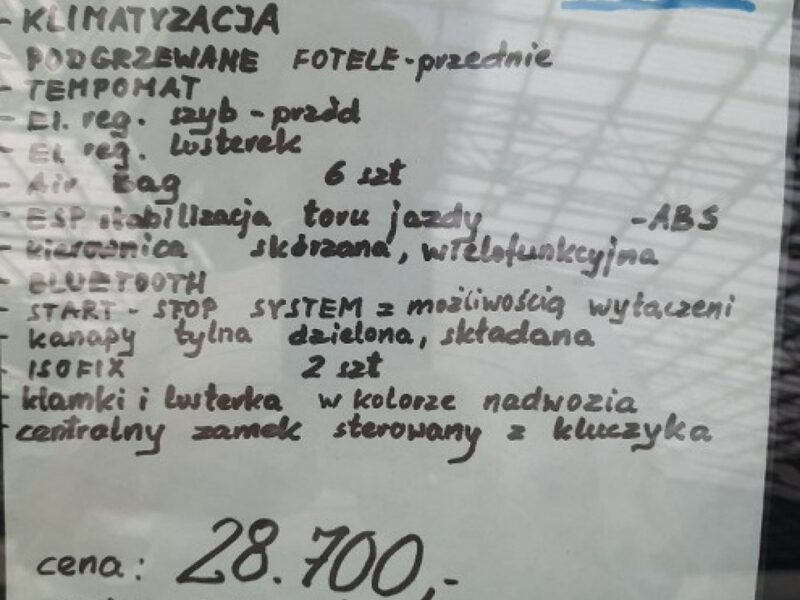 - KLIMATYZACJA
- PODGRZEWANE FOTELE - przednie
- TEMPOMAT
- El. reg. szyb - przód
- El. reg. lusterek
- Air Bag 6 szt
- ESP stabilizacja toru jazdy - ABS
- kierownica skórzana, wielofunkcyjna
- BLUETOOTH
- START - STOP SYSTEM z możliwością wyłączeni
- kanapy tylna dzielona, składana
- ISOFIX 2 szt
- klamki i lusterka w kolorze nadwozia
- centralny zamek sterowany z kluczyka
cena: 28.700,-